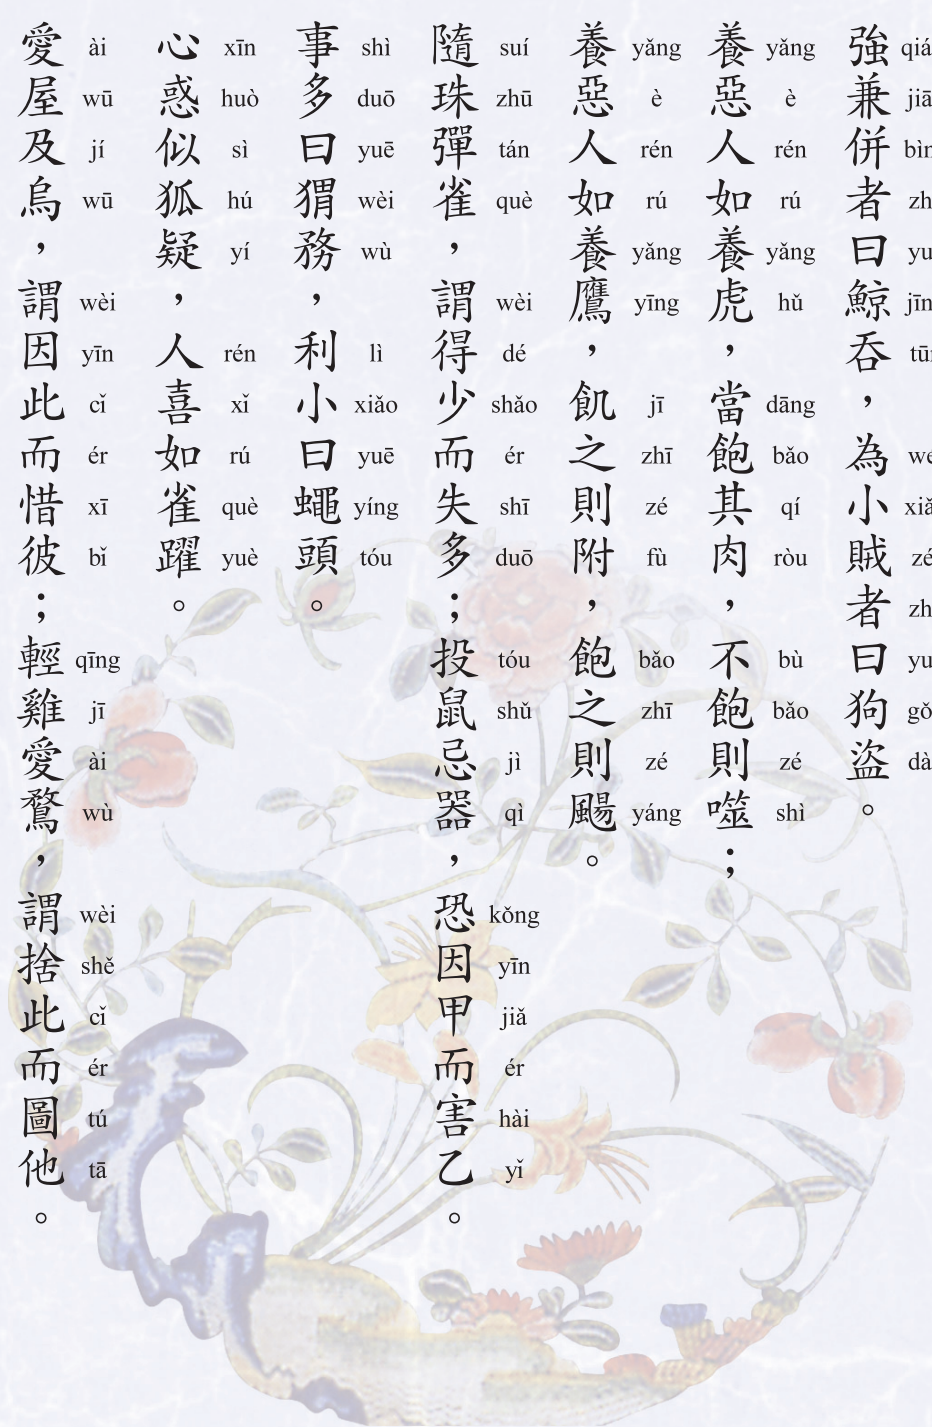 強兼併者曰鯨吞，為小賊者曰狗盜。
養惡人如養虎，當飽其肉，不飽則噬；
yǎng è rén rú yǎng hǔ dāng bǎo qí ròu bù bǎo zé shì
養惡人如養鷹，飢之則附，飽之則颺。
yǎng è rén rú yǎng yīng jī zhī zé fù bǎo zhī zé yáng
隨珠彈雀，謂得少而失多；投鼠忌器，恐因甲而害乙。
suí zhū tán què wèi dé shǎo ér shī duō tóu shǔ jì qì kǒng yīn jiǎ ér hài yǐ
事多曰猬務，利小曰蠅頭。
shì duō yuē wèi wù lì xiǎo yuē yíng tóu
心惑似狐疑，人喜如雀躍。
xīn huò sì hú yí rén xǐ rú què yuè
愛屋及烏，謂因此而惜彼；輕雞愛鶩，謂捨此而圖他。
ài wū jí wū wèi yīn cǐ ér xī bǐ qīng jī ài wù wèi shě cǐ ér tú tā